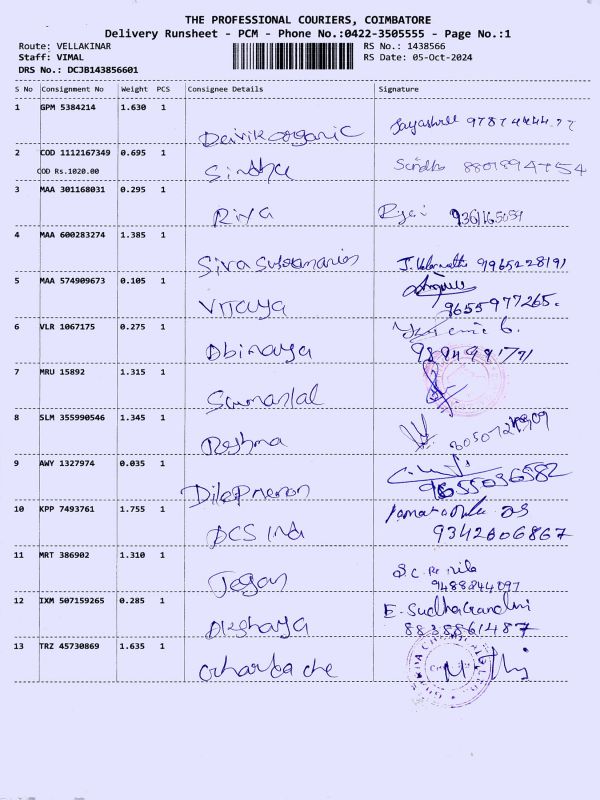 THE PROFESSIONAL COURIERS, COIMBATORE
Delivery Runsheet - PCM - Phone No.:0422-3505555 - Page No.:1
Route: VELLAKINAR RS No.: 1438566
Staff: VIMAL RS Date: 05-Oct-2024
DRS No.: DCJB143856601
S No Consignment No Weight PCS Consignee Details Signature
1 GPM 5384214 1.630 1
Deivik organic
2 COD 1112167349 0.695 1
COD Rs.1020.00 Sindhu Sindhu
3 MAA 301168031 0.295 1
Riya
4 MAA 600283274 1.385 1
Siva 9965228191
5 MAA 574909673 0.105 1
Vijaya 9655977265.
6 VLR 1067175 0.275 1
Abinaya
7 MRU 15892 1.315 1
8 SLM 355990546 1.345 1
Reshma
9 AWY 1327974 0.035 1
9655036582
10 KPP 7493761 1.755 1
DCS Ind 9342606867
11 MRT 386902 1.310 1
Jegan 9488844097
12 IXM 507159265 0.285 1
Akshaya 8838861487
13 TRZ 45730869 1.635 1